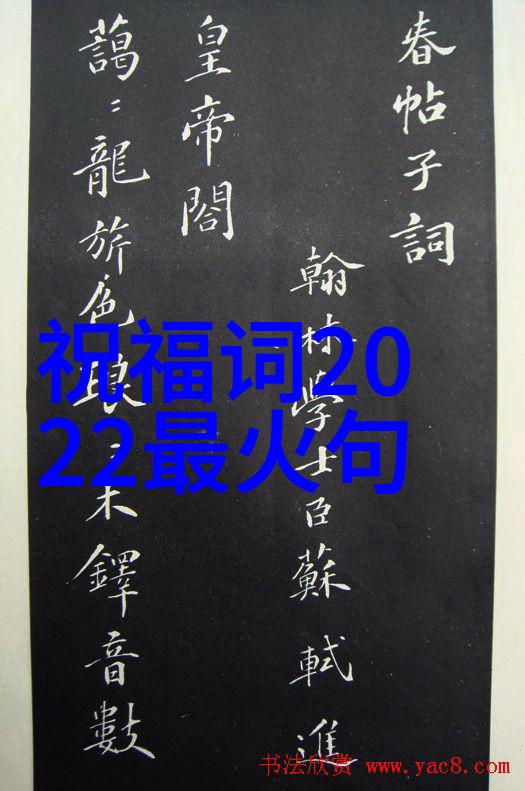 春帖子詞
翰林學士臣蘇軾進
皇帝閤
藹〻龍旂色琅〻木鐸音數
祝福词20
22最火句
书法欣赏 www.yac8.com